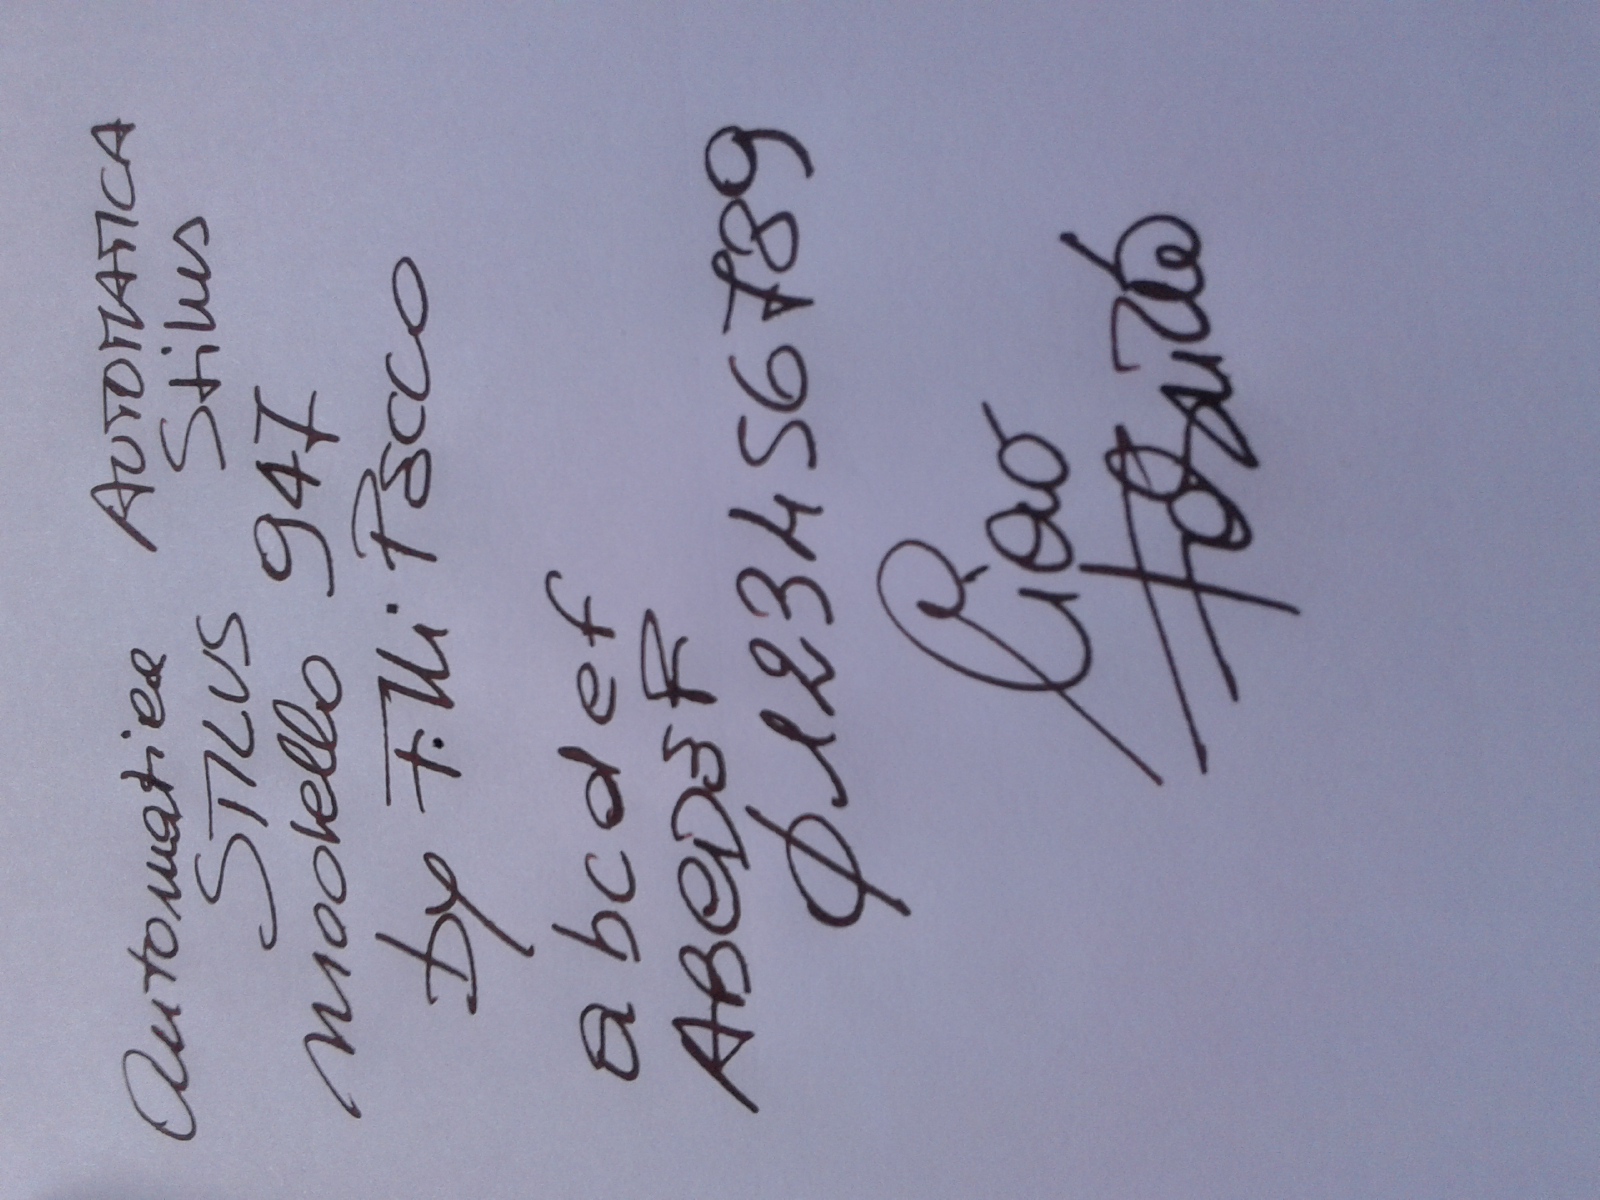 Automatica AUTOMATICA
STILUS Stilus
modello 947
by F.lli Pacco
a b c d e f
ABCDEF
Ø123456789
Ciao